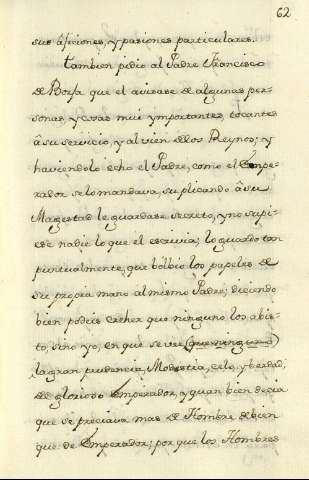 62
sus afiçiones, y pasiones particulares.
tambien pidio al Padre Françisco
de Borja que el avisase de algunas per-
sonas y cosas mui ymportantes, tocantes
â su serviçio, y al vien de los Reynos; y
haviendolo echo el Padre, como el Empe-
rador se lo mandava, suplicando â su
Magestad le guardase secreto, y no supi-
ese nadie lo que el escrivia; lo guardo tan
puntualmente, que bolbio los papeles de
su propia mano al mismo Padre; diciendo
bien podeis creher que ninguno los a bis-
to, sino yo, en que se vee (que ninguno)
la gran prudencia, Modestia, celo, y berdad,
de glorioso Emperador, y quan bien deçia
que se preciava mas de Hombre de bien
que de Emperador; por que los Hombres